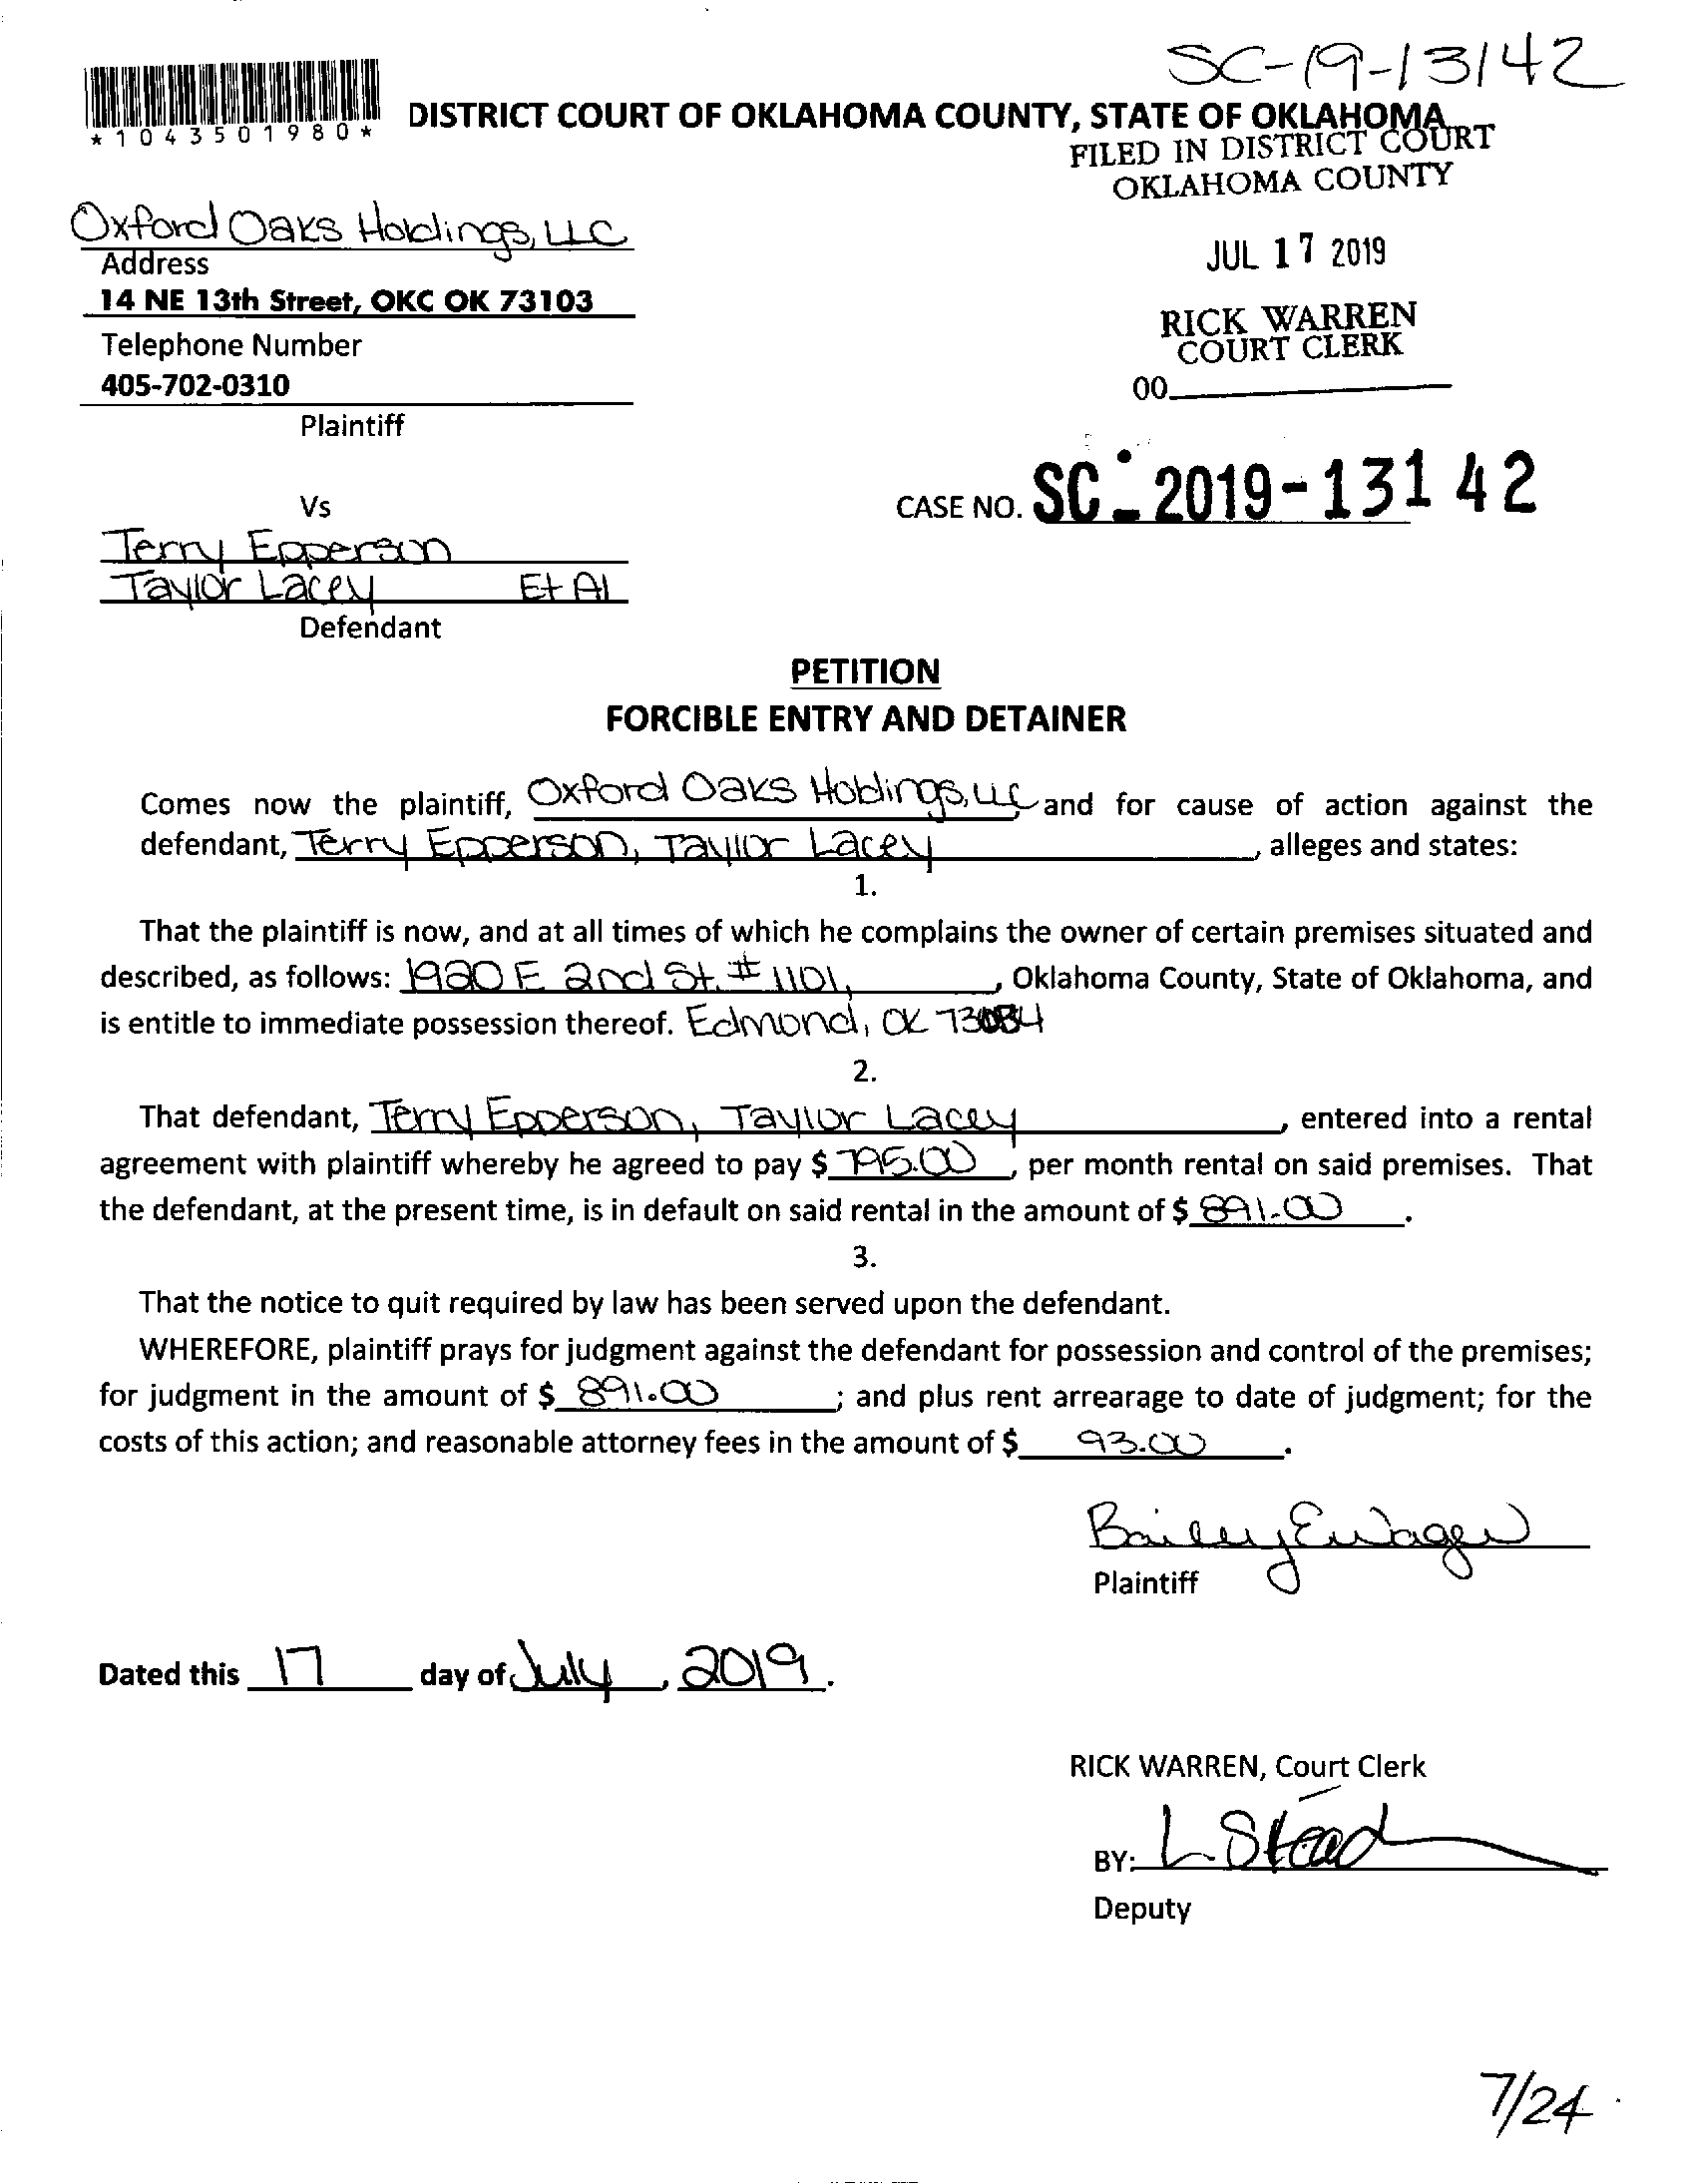 SC-19-13142
*1043501980*
DISTRICT COURT OF OKLAHOMA COUNTY, STATE OF OKLAHOMA
FILED IN DISTRICT COURT
OKLAHOMA COUNTY
JUL 17 2019
RICK WARREN
COURT CLERK
00
Oxford Oaks Holdings, LLC
Address
14 NE 13th Street, OKC OK 73103
Telephone Number
405-702-0310
Plaintiff
Vs
CASE NO. SC-2019-13142
Terry Epperson
Taylor Lacey Et Al
Defendant
PETITION
FORCIBLE ENTRY AND DETAINER
Comes now the plaintiff, Oxford Oaks Holdings, LLC, and for cause of action against the
defendant, Terry Epperson, Taylor Lacey, alleges and states:
1.
That the plaintiff is now, and at all times of which he complains the owner of certain premises situated and
described, as follows: 1920 E 2nd St. # 1101, , Oklahoma County, State of Oklahoma, and
is entitle to immediate possession thereof. Edmond, OK
2.
That defendant, Terry Epperson, Taylor Lacey, entered into a rental
agreement with plaintiff whereby he agreed to pay $ 795.00, per month rental on said premises. That
the defendant, at the present time, is in default on said rental in the amount of $ 891.00.
3.
That the notice to quit required by law has been served upon the defendant.
WHEREFORE, plaintiff prays for judgment against the defendant for possession and control of the premises;
for judgment in the amount of $ 891.00; and plus rent arrearage to date of judgment; for the
costs of this action; and reasonable attorney fees in the amount of $ 93.00.
Plaintiff
Dated this 17 day of July, 2019.
RICK WARREN, Court Clerk
BY: L. Stead
Deputy
7/24